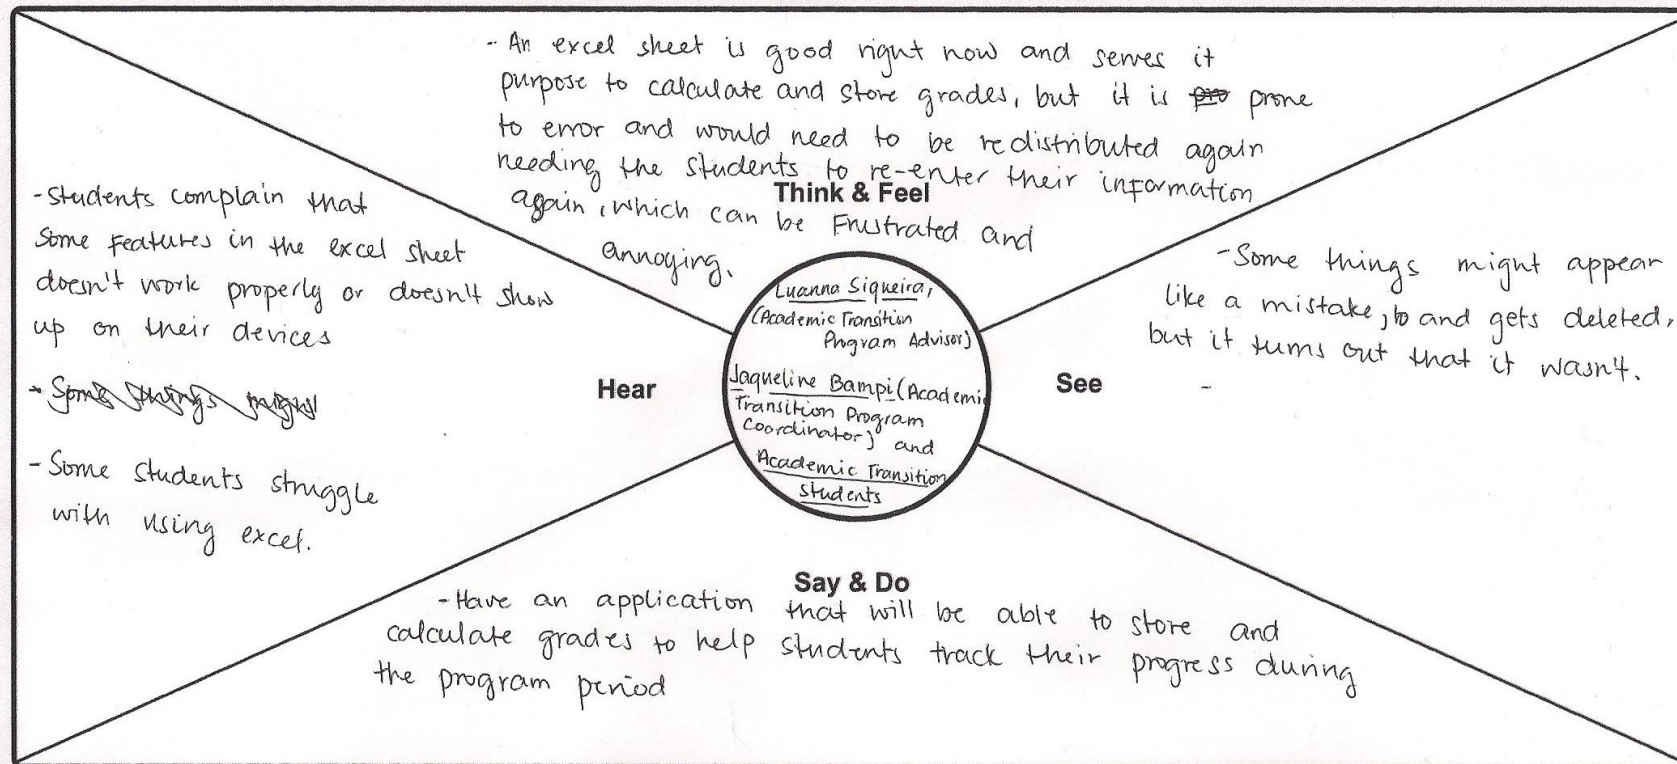 - An excel sheet is good right now and serves it
purpose to calculate and store grades, but it is pro prone
to error and would need to be redistributed again
needing the students to re-enter their information
Think & Feel
again, which can be Frustrated and
annoying.
- Students complain that
Some Features in the excel sheet
doesn't work properly or doesn't show
up on their devices
- Some things might
- Some students struggle
with using excel.
Hear
Luanna Siqueira,
(Academic Transition
Program Advisor)
Jaqueline Bampi (Academi
Transition Program
Coordinator) and
Academic Transition
Students
See
- Some things might appear
like a mistake, to and gets deleted,
but it turns out that it wasn't.
-
Say & Do
- Have an application that will be able to store and
calculate grades to help students track their progress during
the program period